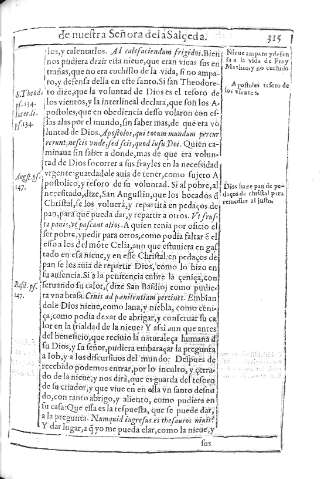 de nuestra Señora de la Salçeda.
315
les, y calentarlos. Al calefaciendum frigidos. Bien
nos pudiera dezir esta nieue, que eran vicas sus en
trañas, que no era cuchillo de la vida, si no ampa-
ro, y defensa della en este santo. Si san Theodore-
to dize, que la voluntad de Dios es el tesoro de
los vientos, y la interlineal declara, que son los A-
postoles, que en obediencia desso volaron con es-
las alas por el mundo, sin saber mas, de que era vo
luntad de Dios, Apostolos, qui totum mundum percur
rerunt, nescijs unde, sed scis, quod iussu Dei. Quien ca-
minaua sin saber a donde, mas de que era volun-
tad de Dios socorrer a sus frayles en la necessidad
vrgente: guardale auia de tener, como sujeto A
postolico, y tesoro de su voluntad. Si al pobre, al
necessitado, dize, San Augustin, que los bocados de
Christal, se los voluerá, y repartirá en pedaços de
pan, para que pueda dar, y repartir a otros.
A quien tenia por oficio el
ser pobre, y pedir para otros, como podia faltar
Celia, aun que estuuiera en
tado en esa nieue, y en esse Christal: en pedaços de
pan se los auia de repartir Dios, como lo hizo en
su ausencia. Si a la penitencia cubre la ceniça, con
seruando su calor, (dize San Basilio) como pudie-
ra vna brasa. Cinis ad panitentiam pertinet. Embian
dole Dios nieue, como lana, y niebla, como ceni-
ça, como podia dexar de abrigar, y conseruar su ca
lor en la frialdad de la nieue? Y assi aun que antes
del beneficio, que recibio la naturaleça humana
su Dios, y su señor, pudiera embaraçar la pregunta
a Iob, y a los discursistas del mundo: Despues de
recebido podemos entrar, por lo inculto, y çerra-
do de la nieue, y nos dirá, que es guarda del tesoro
de su criador, y que viue en ella vn santo desnu
do, con tanto abrigo, y aliento, como pudiera en
su casa: Que essa es la respuesta, que se puede dar,
a la pregunta. Numquid ingressus es thesauros niuis?
Y dar lugar, a q̃ yo me pueda clar, como la nieue, y
sus
pſ. 134.
pſ. 134.
147.
147.
Nieue ampara y defen
sa a la vida de Fray
Apostoles tesoro de
los vientos.
Dios haze pan de pe-
daços de christal para
remediar al justo.